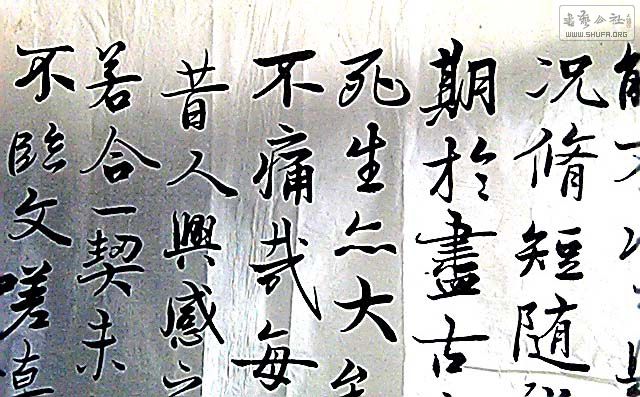 况脩短随
期於盡古
死生亦大
不痛哉每
昔人興感
若合一契未
不臨文嗟
書藝公社
WWW.SHUFA.ORG